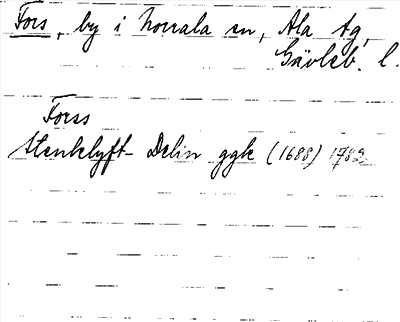 Fors, by i Norrala sn, Ala tg,
Gävleb. l.
Forss
Stenklyft- Delin ggk (1688) 1782